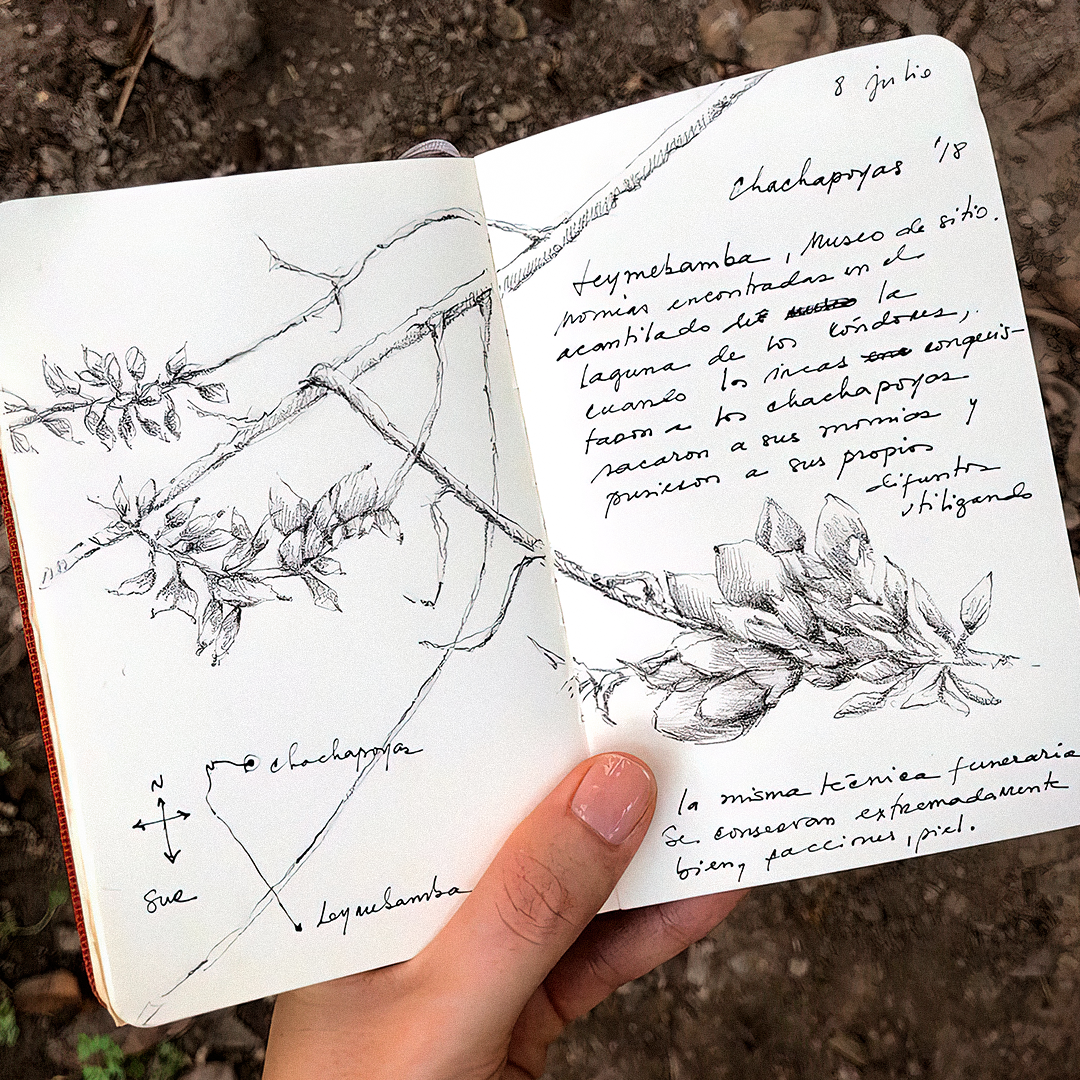 N
chachapoyas
Sur
Leymebamba
8 julio
Chachapoyas '18
Leymebamba, Museo de sitio.
Momias encontradas en el
acantilado de la
laguna de los cóndores,
cuando los incas conquis-
taron a los chachapoyas
sacaron a sus momias y
pusieron a sus propios
difuntos
utilizando
la misma técnica funeraria
Se conservan extremadamente
bien, facciones, piel.